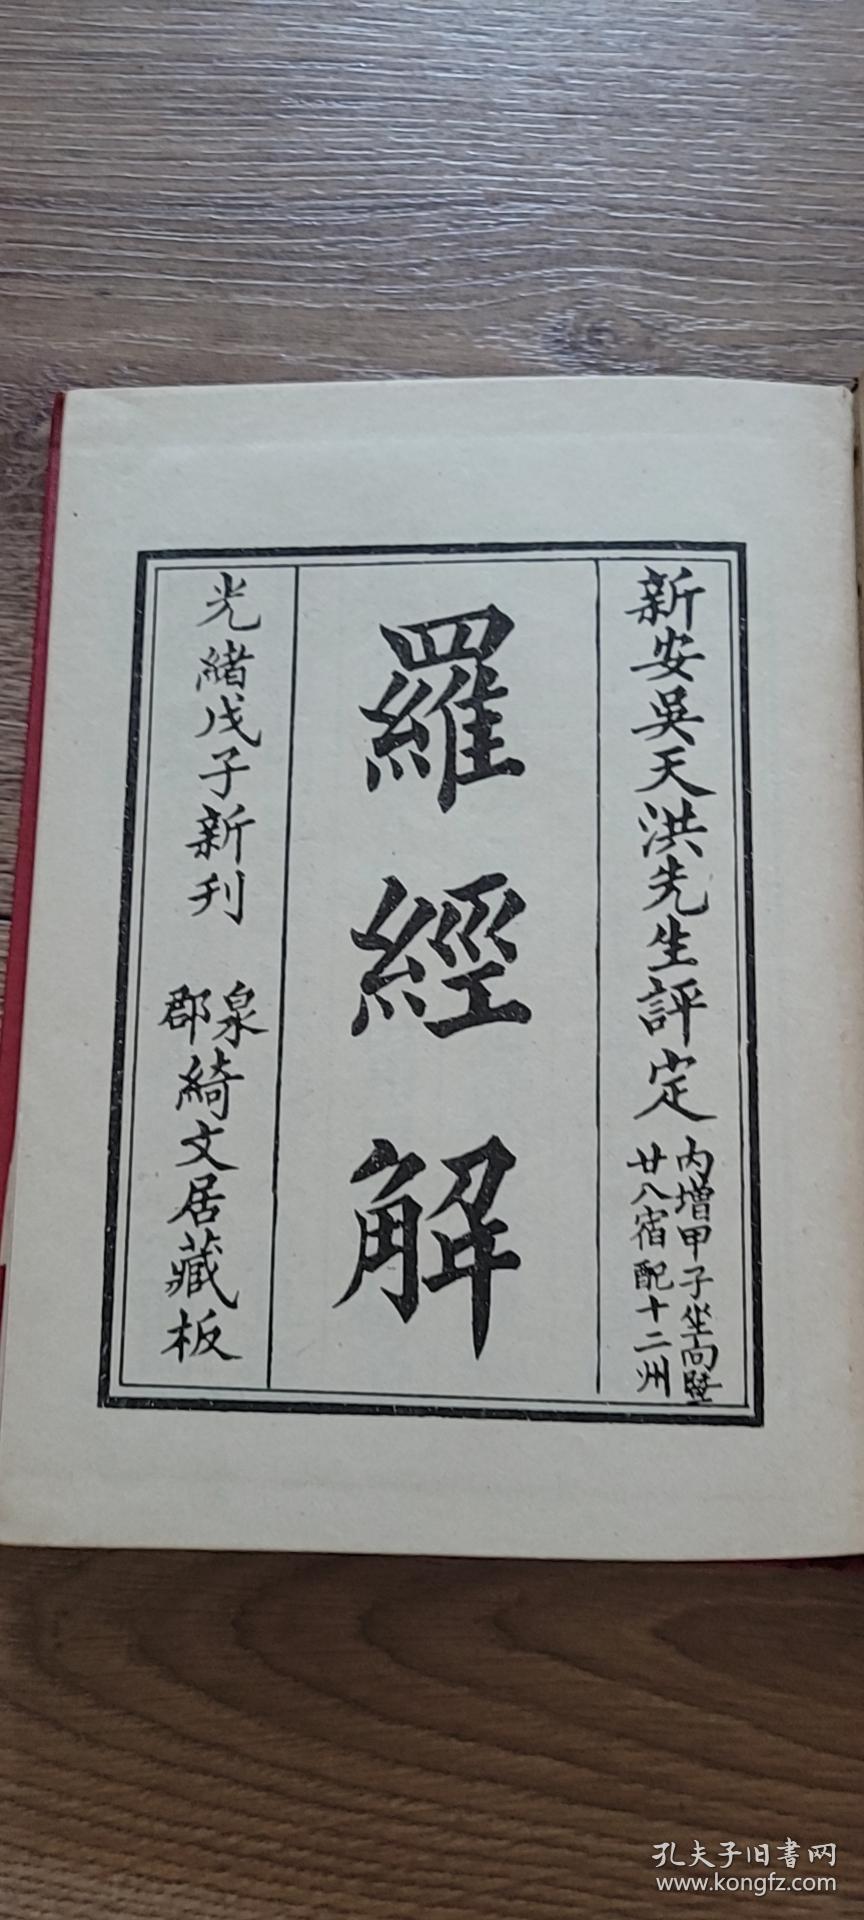 新安吳天洪先生評定
內增甲子坐向
廿八宿配十二州
羅經解
光緒戊子新刊
泉郡綺文居藏板
孔夫子旧書网
www.kongfz.com